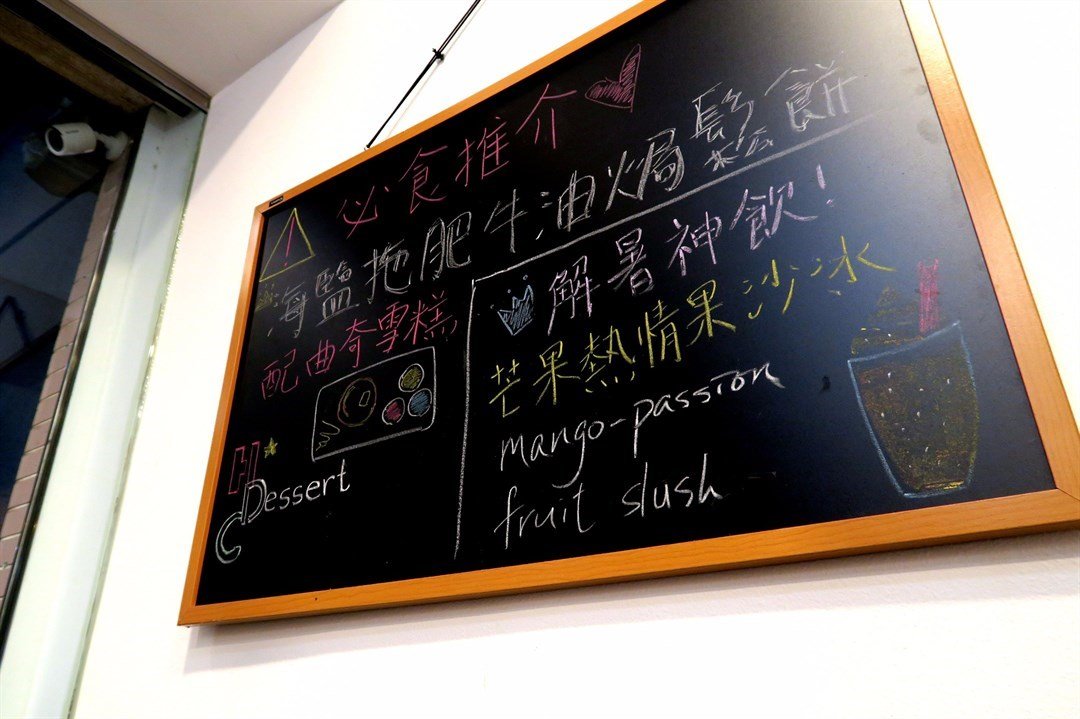 必食推介
海鹽拖肥牛油焗鬆餅
配曲奇雪糕
Hi
Dessert
解暑神飲！
芒果熱情果沙冰
mango-passion
fruit slush